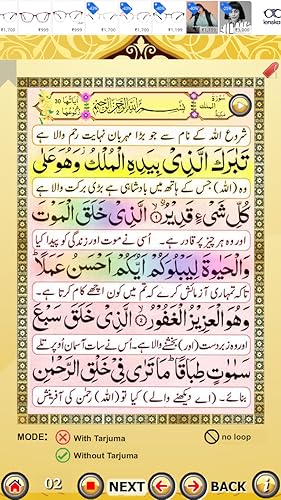 ₹1,700 ₹999 ₹1,700 ₹1,700 ₹1,199 ₹1,399 ₹3,000 lenska
سورة الملك مكية بِسْمِ اللهِ الرَّحْمٰنِ الرَّحِيْمِ اٰیاتها 30 رکوعها 2
شروع اللہ کے نام سے جو بڑا مہربان نہایت رحم والا ہے
تَبٰرَكَ الَّذِیْ بِیَدِهِ الْمُلْكُ وَهُوَ عَلٰی
وہ (اللہ) جس کے ہاتھ میں بادشاہی ہے بڑی برکت والا ہے
كُلِّ شَیْءٍ قَدِیْرُ ۙ﴿۱﴾ الَّذِیْ خَلَقَ الْمَوْتَ
اور وہ ہر چیز پر قادر ہے۔ اُسی نے موت اور زندگی کو پیدا کیا
وَالْحَیٰوةَ لِیَبْلُوَكُمْ اَیُّكُمْ اَحْسَنُ عَمَلًا ؕ
تاکہ تمہاری آزمائش کرے کہ تم میں کون اچھے کام کرتا ہے۔
وَهُوَ الْعَزِیْزُ الْغَفُوْرُ ۙ﴿۲﴾ الَّذِیْ خَلَقَ سَبْعَ
اور وہ زبردست (اور) بخشنے والا ہے۔ اس نے سات آسمان اوپر تلے
سَمٰوٰتٍ طِبَاقًا ؕ مَا تَرٰی فِیْ خَلْقِ الرَّحْمٰنِ
بنائے۔ (اے دیکھنے والے) کیا تو (اللہ) رحمٰن کی آفرینش
MODE: With Tarjuma no loop
Without Tarjuma
02 NEXT BACK